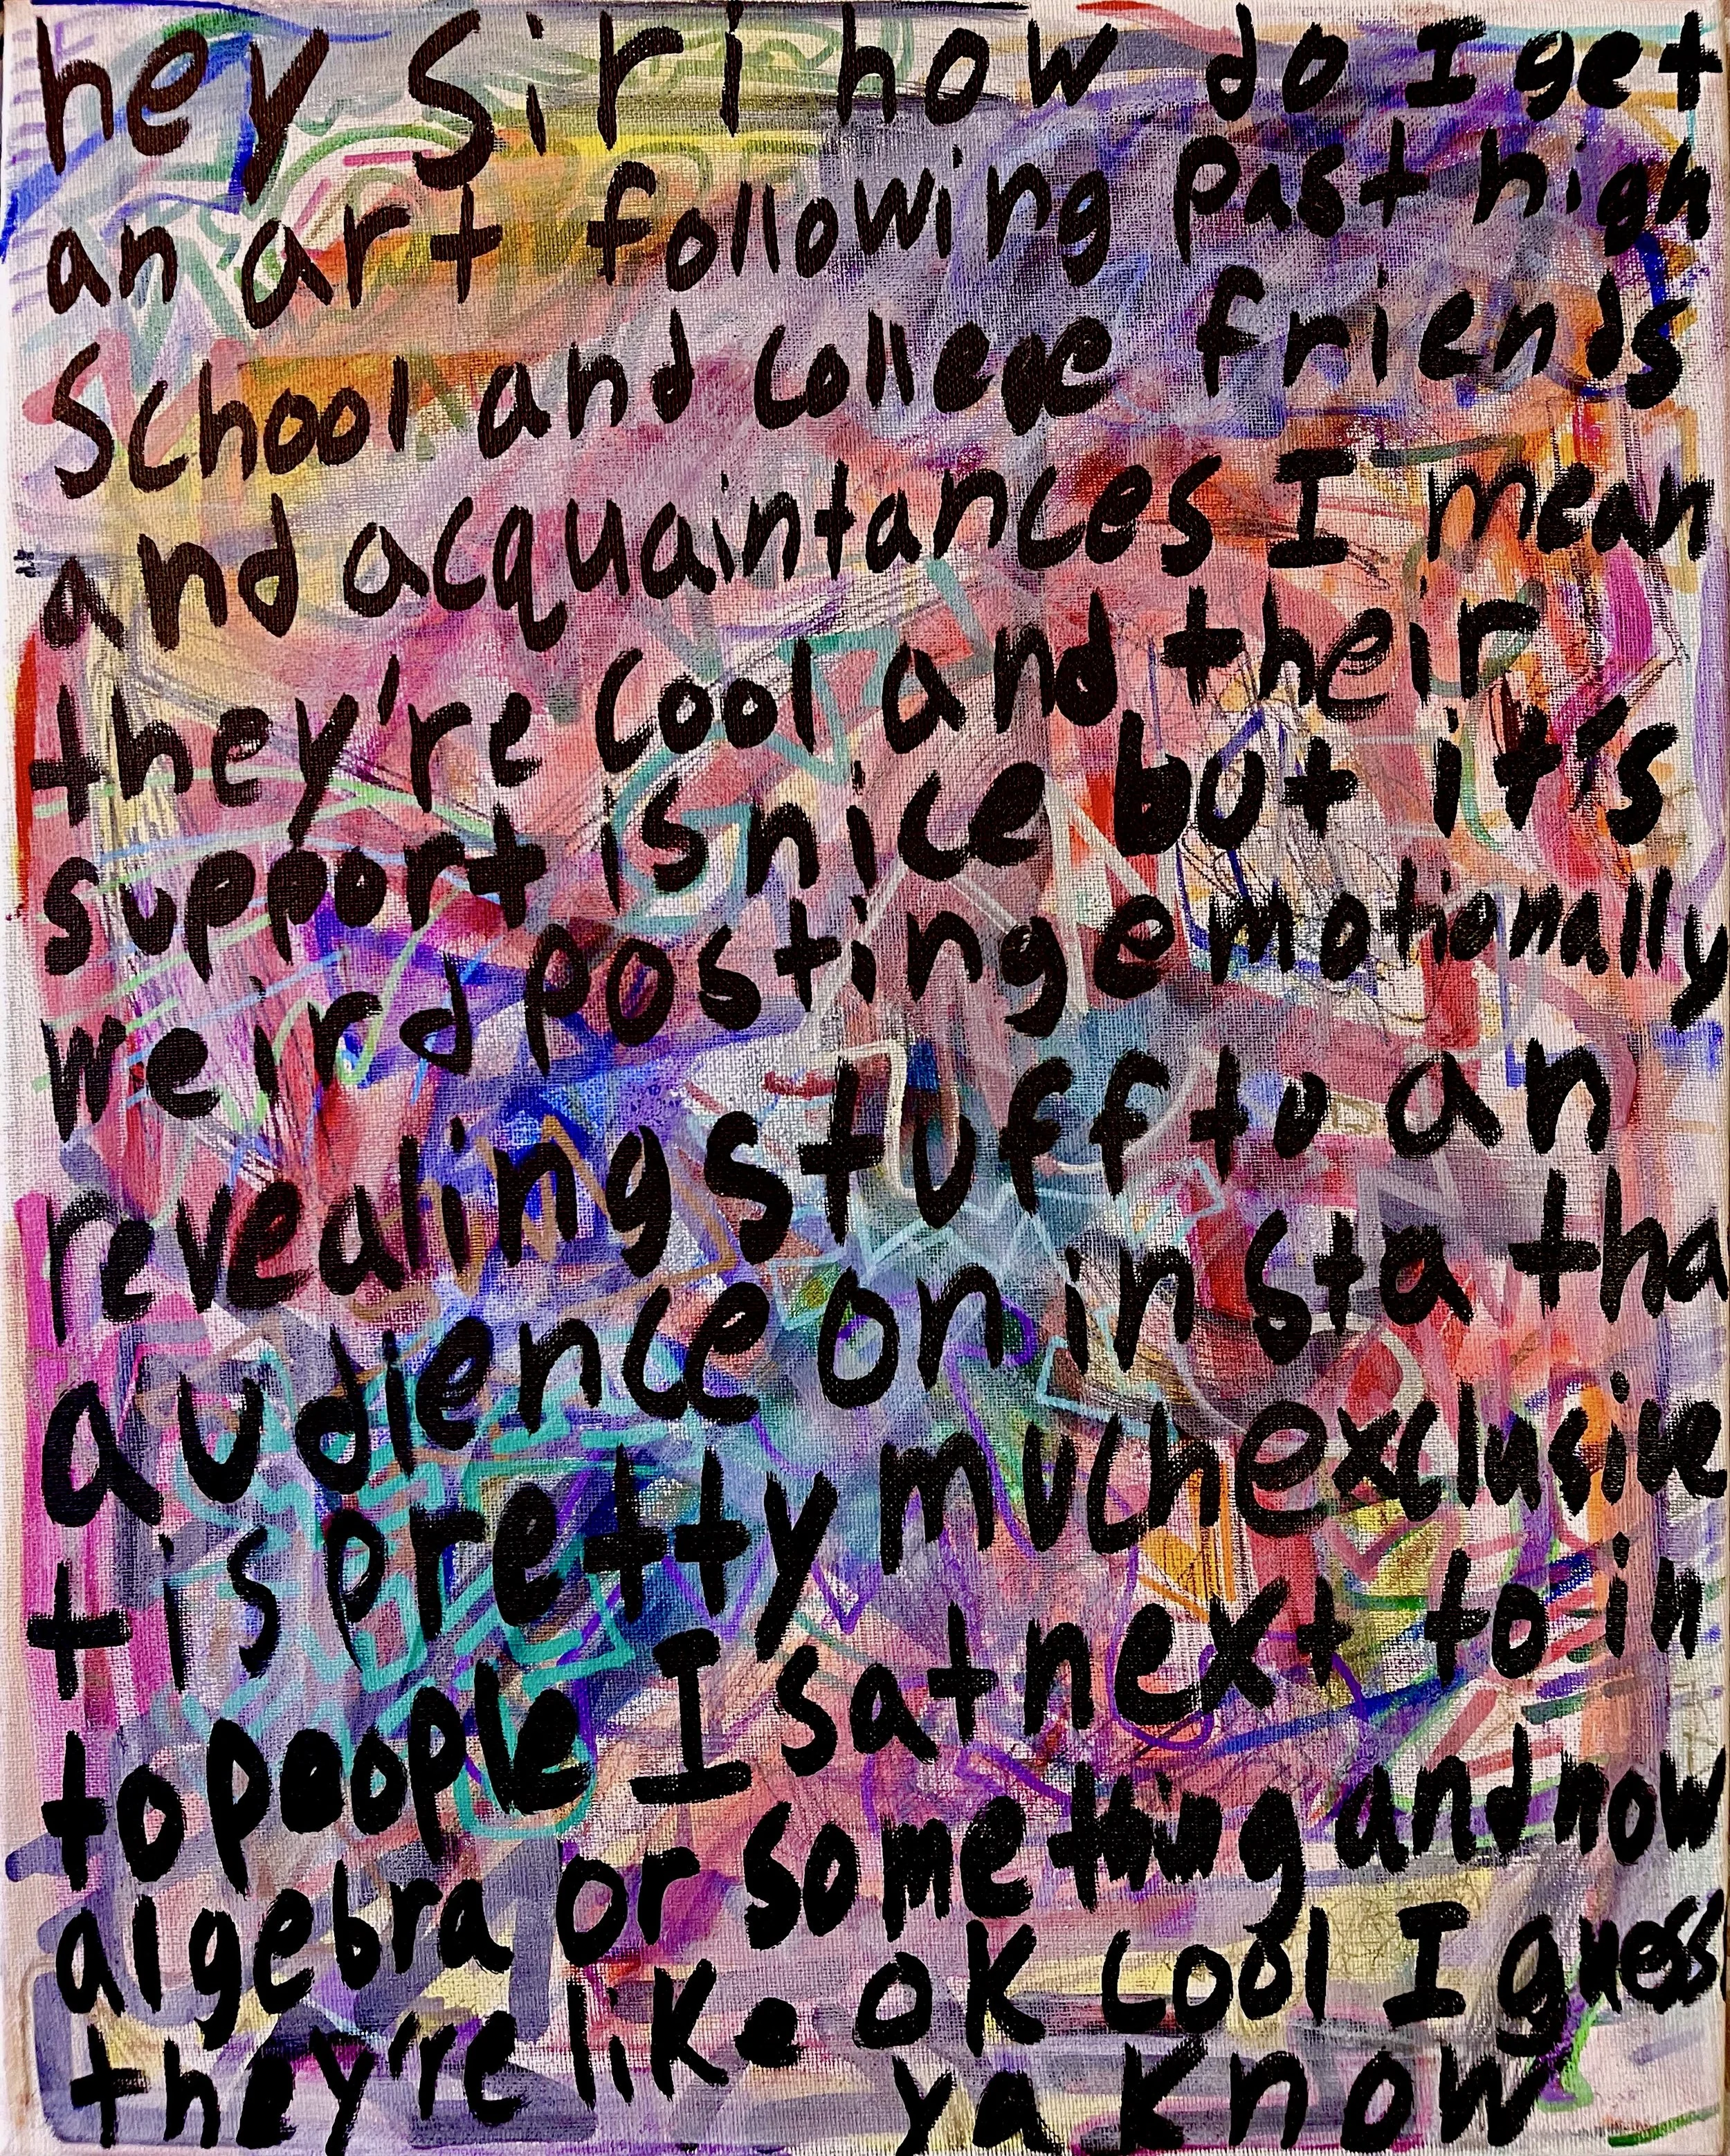 hey Siri how do I get
an art following past high
School and college friends
and acquaintances I mean
they're cool and their
support is nice but it's
weird posting emotionally
revealing stuff to an
audience on insta tha
t is pretty much exclusive
to people I sat next to in
algebra or something and now
they're like ok cool I guess
ya know